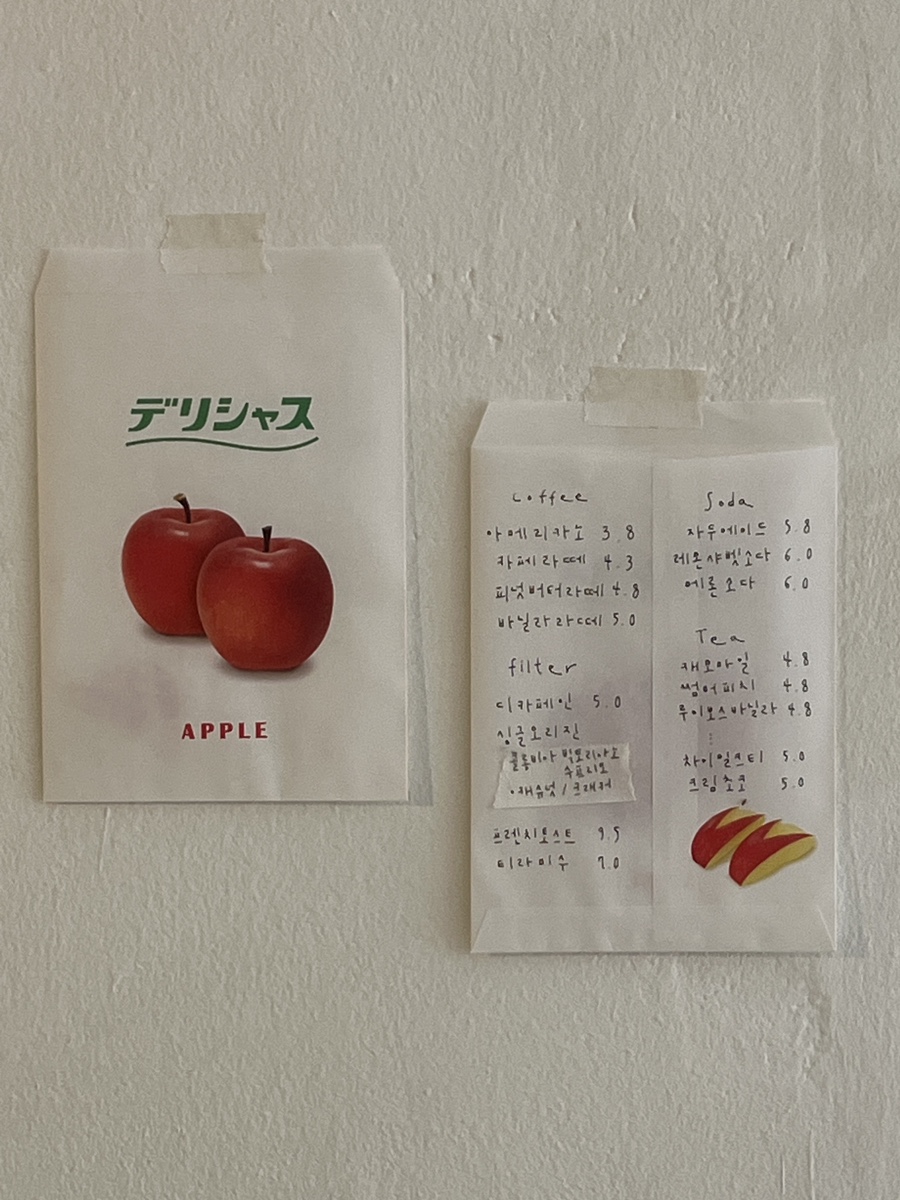 デリシャス
APPLE
coffee
아메리카노 3.8
카페라떼 4.3
피넛버터라떼 4.8
바닐라라떼 5.0
filter
디카페인 5.0
싱글오리진
콜롬비아 빅토리아노
수프리모
·캐슈넛 / 크래커
프렌치토스트 9.5
티라미수 7.0
Soda
자두에이드 5.8
레몬샤벳소다 6.0
메론소다 6.0
Tea
캐모마일 4.8
썸머피치 4.8
루이보스바닐라 4.8
차이밀크티 5.0
크림쵸코 5.0